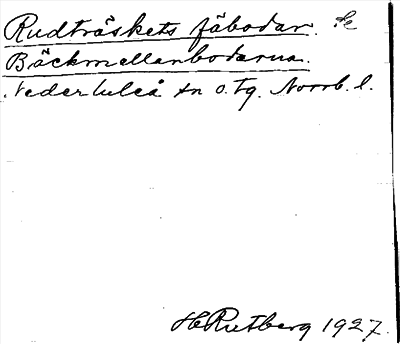 Rudträskets fäbodar. se
Bäckmellanbodarna.
Nederluleå sn o. tg. Norrb. l.
H Rutberg 1927.